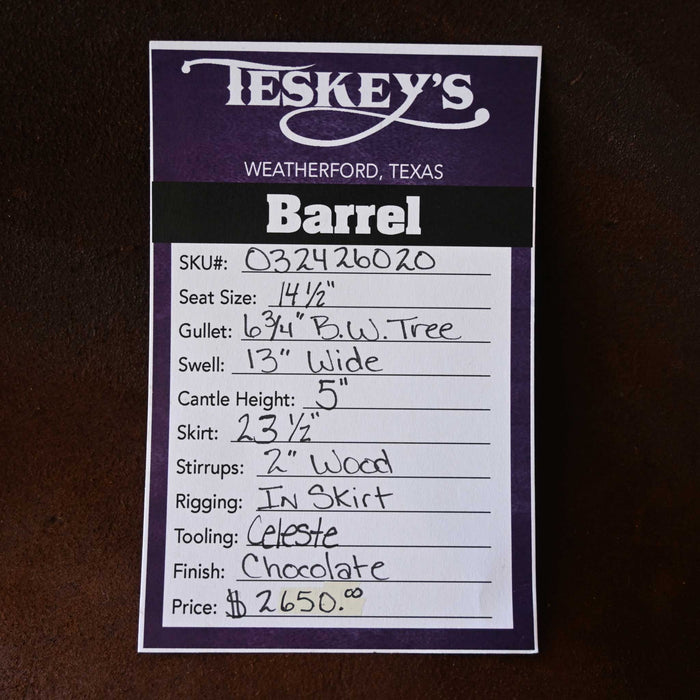 TESKEY'S
WEATHERFORD, TEXAS
Barrel
SKU#: 032426020
Seat Size: 14 1/2"
Gullet: 6 3/4" B.W. Tree
Swell: 13" Wide
Cantle Height: 5"
Skirt: 23 1/2"
Stirrups: 2" Wood
Rigging: IN Skirt
Tooling: Celeste
Finish: Chocolate
Price: $2650.00